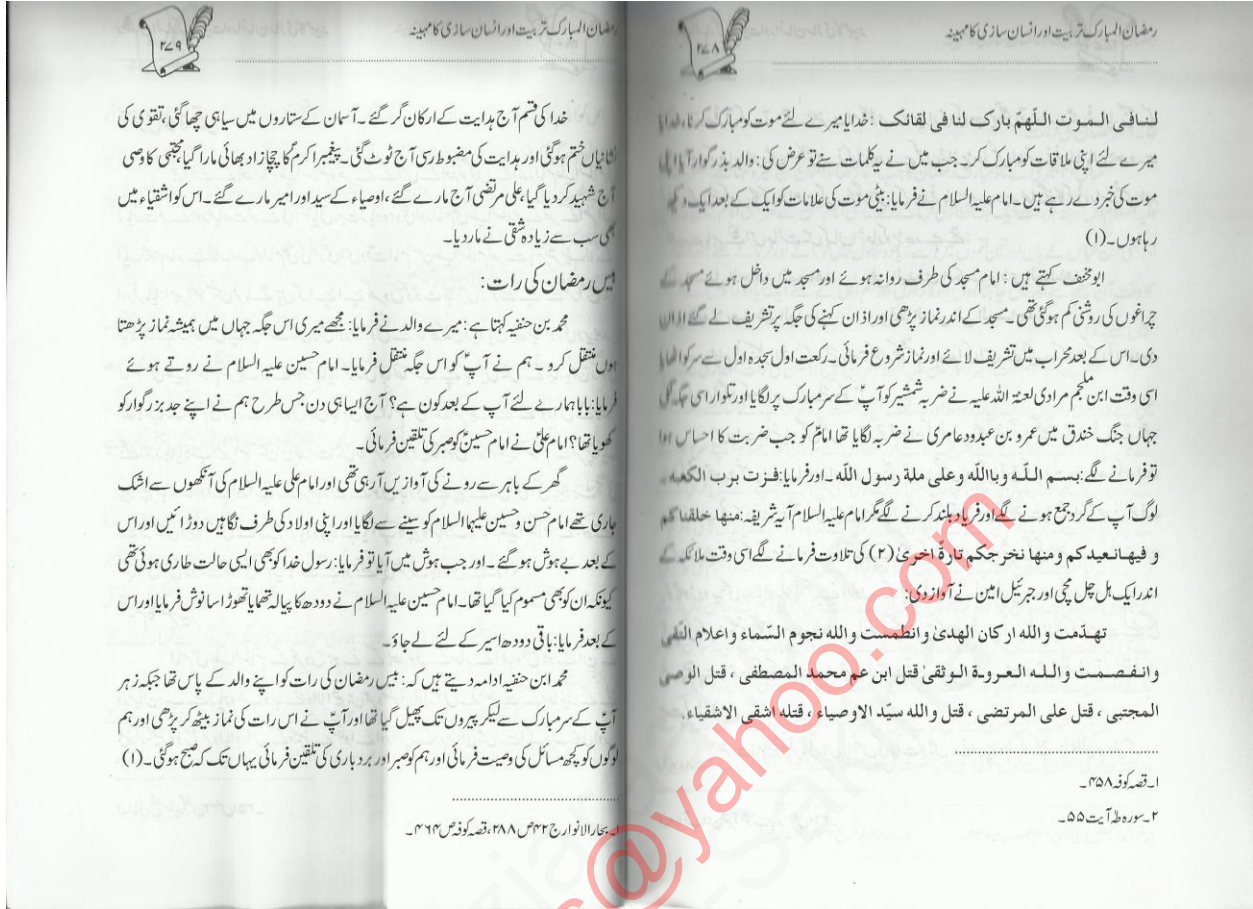 رمضان المبارک تربیت اور انسان سازی کا مہینہ
۲۷۸
لنافی الموت اللّٰھمّ بارک لنا فی لقائک : خدایا میرے لئے موت کو مبارک کرنا، خدایا
میرے لئے اپنی ملاقات کو مبارک کر۔ جب میں نے یہ کلمات سنے تو عرض کی: والد بزرگوار آپ اپنی
موت کی خبر دے رہے ہیں۔ امام علیہ السلام نے فرمایا: بیٹی موت کی علامات کو ایک کے بعد ایک دیکھ
رہا ہوں۔(۱)
ابو مخنف کہتے ہیں : امام مسجد کی طرف روانہ ہوئے اور مسجد میں داخل ہوئے مسجد کے
چراغوں کی روشنی کم ہوگئی تھی۔ مسجد کے اندر نماز پڑھی اور اذان کہنے کی جگہ پر تشریف لے گئے اذان
دی۔ اس کے بعد محراب میں تشریف لائے اور نماز شروع فرمائی۔ رکعت اول سجدہ اول سے سر کو اٹھایا
اسی وقت ابن ملجم مرادی لعنۃ اللہ علیہ نے ضربہ شمشیر کو آپؑ کے سر مبارک پر لگایا اور تلوار اسی جگہ لگی
جہاں جنگ خندق میں عمرو بن عبدود عامری نے ضربہ لگایا تھا امامؑ کو جب ضربت کا احساس ہوا
تو فرمانے لگے: بسم اللّہ وباللّہ وعلی ملة رسول اللّہ۔ اور فرمایا: فزت برب الکعبہ۔
لوگ آپ کے گرد جمع ہونے لگے اور فریاد بلند کرنے لگے مگر امام علیہ السلام آیہ شریفہ: منھا خلقناکم
و فیھا نعیدکم ومنھا نخرجکم تارةً اخریٰ (۲) کی تلاوت فرمانے لگے اسی وقت ملائکہ کے
اندر ایک ہل چل مچی اور جبرئیل امین نے آواز دی:
تھدّمت واللہ ارکان الھدیٰ وانطمست واللہ نجوم السّماء واعلام التّقی
وانفصمت واللہ العروۃ الوثقیٰ قتل ابن عم محمد المصطفی ، قتل الوصی
المجتبی ، قتل علی المرتضی ، قتل واللہ سیّد الاوصیاء ، قتلہ اشقی الاشقیاء.
۱۔ قصہ کوفہ ۴۵۸۔
۲۔ سورہ طہٰ آیت ۵۵۔
رمضان المبارک تربیت اور انسان سازی کا مہینہ
۲۷۹
خدا کی قسم آج ہدایت کے ارکان گر گئے۔ آسمان کے ستاروں میں سیاہی چھا گئی، تقویٰ کی
نشانیاں ختم ہو گئی اور ہدایت کی مضبوط رسی آج ٹوٹ گئی۔ پیغمبر اکرمؐ کا چچازاد بھائی مارا گیا، مجتبیٰ کا وصی
آج شہید کر دیا گیا، علی مرتضیٰ آج مارے گئے، اوصیاء کے سید اور امیر مارے گئے۔ اس کو اشقیاء میں
بھی سب سے زیادہ شقی نے مار دیا۔
بیس رمضان کی رات:
محمد بن حنفیہ کہتا ہے: میرے والد نے فرمایا: مجھے میری اس جگہ جہاں میں ہمیشہ نماز پڑھتا
ہوں منتقل کرو۔ ہم نے آپؑ کو اس جگہ منتقل فرمایا۔ امام حسین علیہ السلام نے روتے ہوئے
فرمایا: بابا ہمارے لئے آپ کے بعد کون ہے؟ آج ایسا ہی دن جس طرح ہم نے اپنے جد بزرگوار کو
کھویا تھا؟ امام علیؑ نے امام حسینؑ کو صبر کی تلقین فرمائی۔
گھر کے باہر سے رونے کی آوازیں آرہی تھی اور امام علی علیہ السلام کی آنکھوں سے اشک
جاری تھے امام حسن و حسین علیہما السلام کو سینے سے لگایا اور اپنی اولاد کی طرف نگاہیں دوڑائیں اور اس
کے بعد بے ہوش ہو گئے۔ اور جب ہوش میں آیا تو فرمایا: رسول خدا کو بھی ایسی حالت طاری ہوئی تھی
کیونکہ ان کو بھی مسموم کیا گیا تھا۔ امام حسین علیہ السلام نے دودھ کا پیالہ تھمایا تھوڑا سا نوش فرمایا اور اس
کے بعد فرمایا: باقی دودھ اسیر کے لئے لے جاؤ۔
محمد ابن حنفیہ ادامہ دیتے ہیں کہ: بیس رمضان کی رات کو اپنے والد کے پاس تھا جبکہ زہر
آپؑ کے سر مبارک سے لیکر پیروں تک پھیل گیا تھا اور آپؑ نے اس رات کی نماز بیٹھ کر پڑھی اور ہم
لوگوں کو کچھ مسائل کی وصیت فرمائی اور ہم کو صبر اور بردباری کی تلقین فرمائی یہاں تک کہ صبح ہو گئی۔(۱)
۱۔ بحار الانوار ج ۴۲ ص ۲۸۸، قصہ کوفہ ص ۴۶۴۔
s@yahoo.com